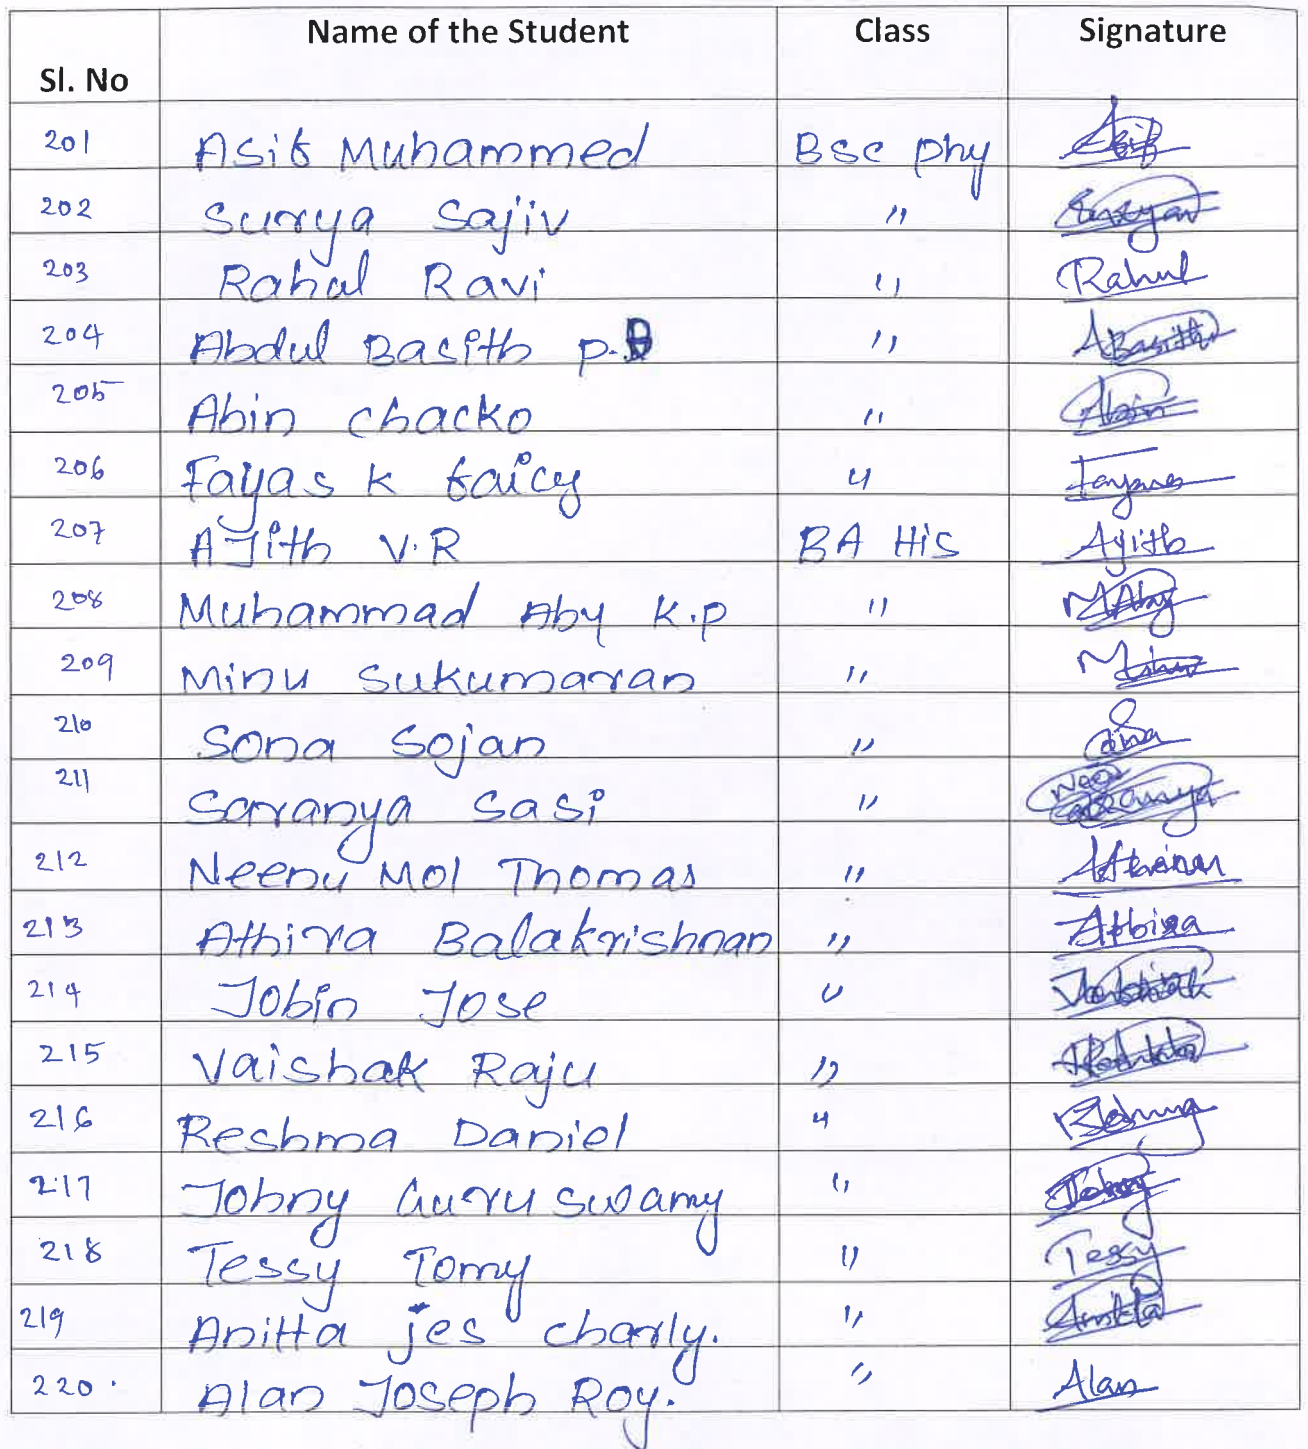 Name of the Student Class Signature
Sl. No
201 Asif Muhammed Bsc phy Asif
202 Surya Sajiv " Surya
203 Rahul Ravi " Rahul
204 Abdul Basith P. " ABasith
205 Abin chacko " Abin
206 Fayas K faicy " Fayas
207 AJith V.R BA His Ajith
208 Muhammad Aby K.P " MAby
209 Minu Sukumaran " Minu
210 Sona Sojan " Sona
211 Saranya Sasi " Saranya
212 Neenu Mol Thomas "
213 Athira Balakrishnan " Athira
214 Jobin Jose "
215 Vaishak Raju "
216 Reshma Daniel "
217 Johny Guruswamy " Johny
218 Tessy Tomy " Tessy
219 Anitta jes charly. " Anitta
220. Alan Joseph Roy. " Alan